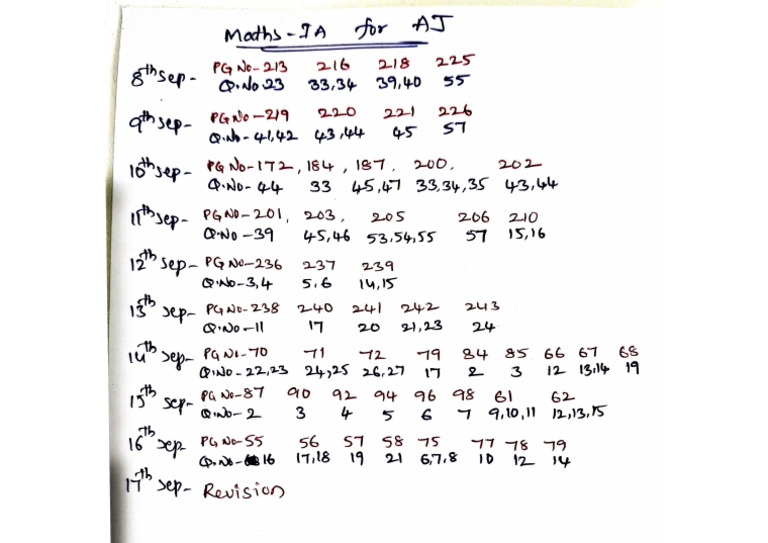 Maths-IA for AJ
8th Sep- PG No-213 216 218 225
Q.No-23 33,34 39,40 55
9th Sep- PG No-219 220 221 226
Q.No-41,42 43,44 45 57
10th Sep- PG No-172, 184, 187, 200, 202
Q.No-44 33 45,47 33,34,35 43,44
11th Sep- PG No-201, 203, 205 206 210
Q.No-39 45,46 53,54,55 57 15,16
12th Sep- PG No-236 237 239
Q.No-3,4 5,6 14,15
13th Sep- PG No-238 240 241 242 243
Q.No-11 17 20 21,23 24
14th Sep- PG No-70 71 72 79 84 85 66 67 68
Q.No-22,23 24,25 26,27 17 2 3 12 13,14 19
15th Sep- PG No-87 90 92 94 96 98 61 62
Q.No-2 3 4 5 6 7 9,10,11 12,13,15
16th Sep- PG No-55 56 57 58 75 77 78 79
Q.No-16 17,18 19 21 6,7,8 10 12 14
17th Sep- Revision